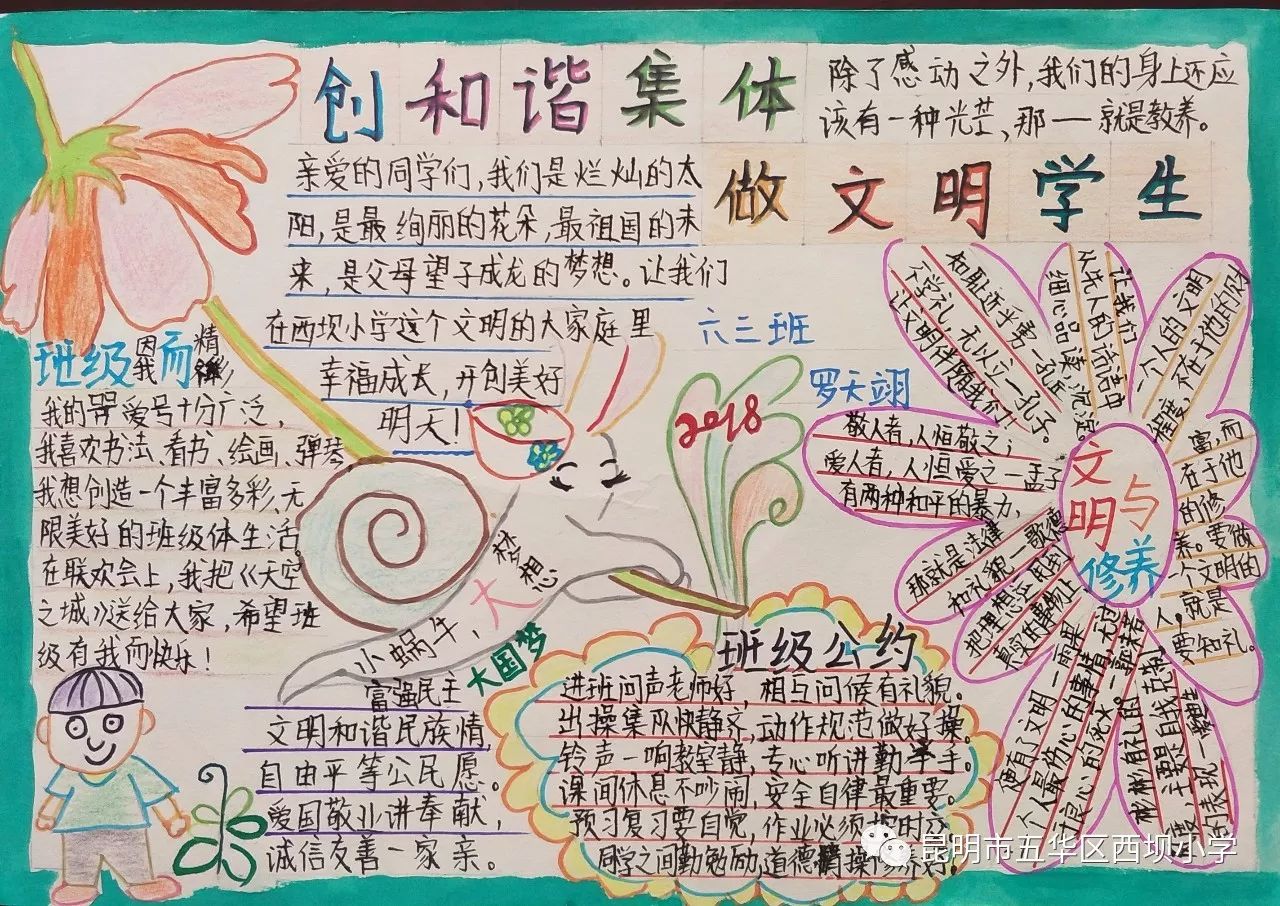 创和谐集体
做文明学生
除了感动之外,我们的身上还应
该有一种光芒,那——就是教养。
亲爱的同学们,我们是烂灿的太
阳,是最绚丽的花朵,最祖国的未
来,是父母望子成龙的梦想。让我们
在西坝小学这个文明的大家庭里
幸福成长,开创美好
明天!
六三班
罗天翊
2018
班级因我而精彩
我的 爱号十分广泛,
我喜欢书法、看书、绘画、弹琴
我想创造一个丰富多彩、无
限美好的班级体生活。
在联欢会上,我把《天空
之城》送给大家,希望班
级有我而快乐!
小蜗牛,大梦想
大国梦
富强民主
文明和谐民族情,
自由平等公民愿。
爱国敬业讲奉献,
诚信友善一家亲。
班级公约
进班问声老师好,相互问候有礼貌。
出操集队快静齐,动作规范做好操。
铃声一响教室静,专心听讲勤举手。
课间休息不吵闹,安全自律最重要。
预习复习要自觉,作业必须按时
同学之间勤勉励,道德 操修养好。
文明与
修养
知耻近乎勇一孔丘
不学礼,无以立一孔子。
让文明伴随我们
让我们
从先人的话语中
细心品味,沉淀
一个人的文明
程度,不在于他的财
富,而
在于他
的修
养。要做
一个文明的
人,就是
要知礼。
敬人者,人恒敬之;
爱人者,人恒爱之一孟子
有两种和平的暴力,
那就是法律
和礼貌一歌德
把理想运用到
真实的事物上
便有了文明一雨果
一个人最伤心的事情,大过
于良心的火一
彬彬有礼的
主要是自我克制
的表现一
昆明市五华区西坝小学